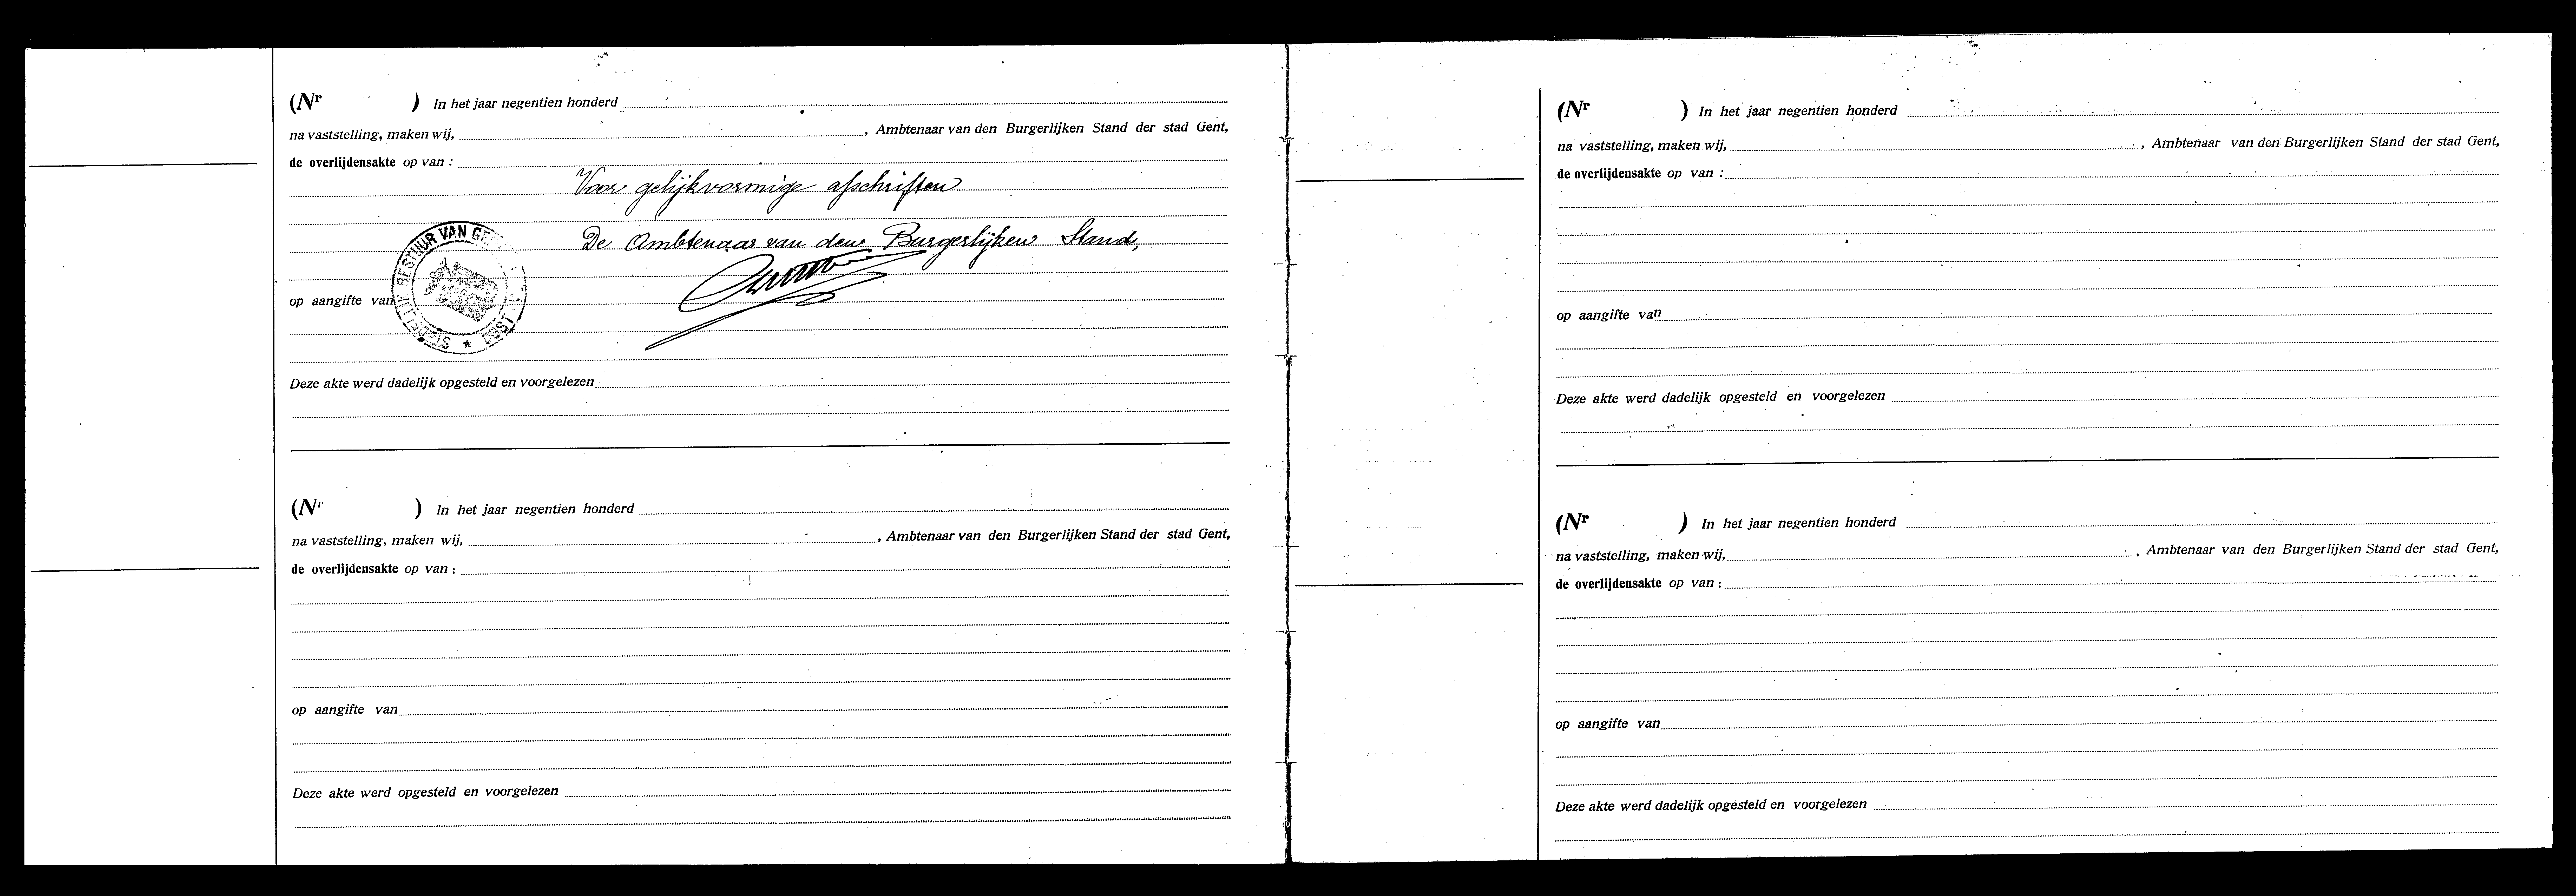 (Nr ) In het jaar negentien honderd
na vaststelling, maken wij, , Ambtenaar van den Burgerlijken Stand der stad Gent,
de overlijdensakte op van :
Voor gelijkvormige afschriften
De Ambtenaar van den Burgerlijken Stand,
BESTUUR VAN
op aangifte van
Deze akte werd dadelijk opgesteld en voorgelezen
(Nr ) In het jaar negentien honderd
na vaststelling, maken wij, , Ambtenaar van den Burgerlijken Stand der stad Gent,
de overlijdensakte op van :
op aangifte van
Deze akte werd opgesteld en voorgelezen
(Nr ) In het jaar negentien honderd
na vaststelling, maken wij, , Ambtenaar van den Burgerlijken Stand der stad Gent,
de overlijdensakte op van :
op aangifte van
Deze akte werd dadelijk opgesteld en voorgelezen
(Nr ) In het jaar negentien honderd
na vaststelling, maken wij, , Ambtenaar van den Burgerlijken Stand der stad Gent,
de overlijdensakte op van :
op aangifte van
Deze akte werd dadelijk opgesteld en voorgelezen